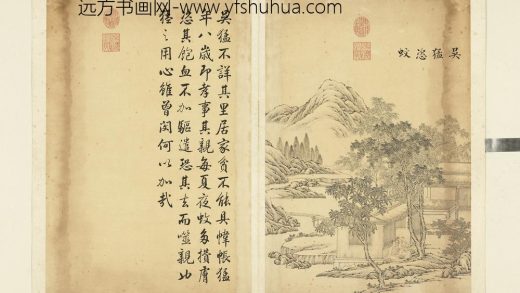 远方书画网-www.yfshuhua.com
吳猛恣蚊
吳猛不詳其里居家貧不能具幃帳猛
年八歲即孝事其親每夏夜蚊多攢膚
恣其飽血不加驅遣恐其去而噬親
之用心雖曾閔何以加哉